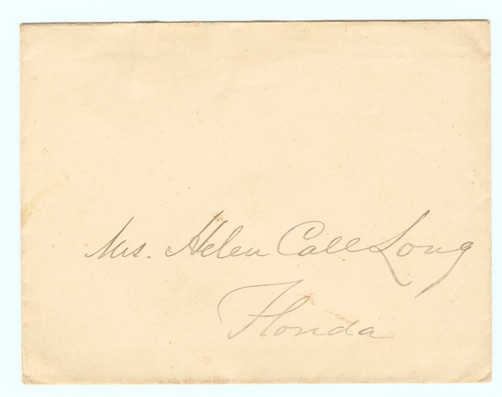 Mrs. Helen Call Long
Florida